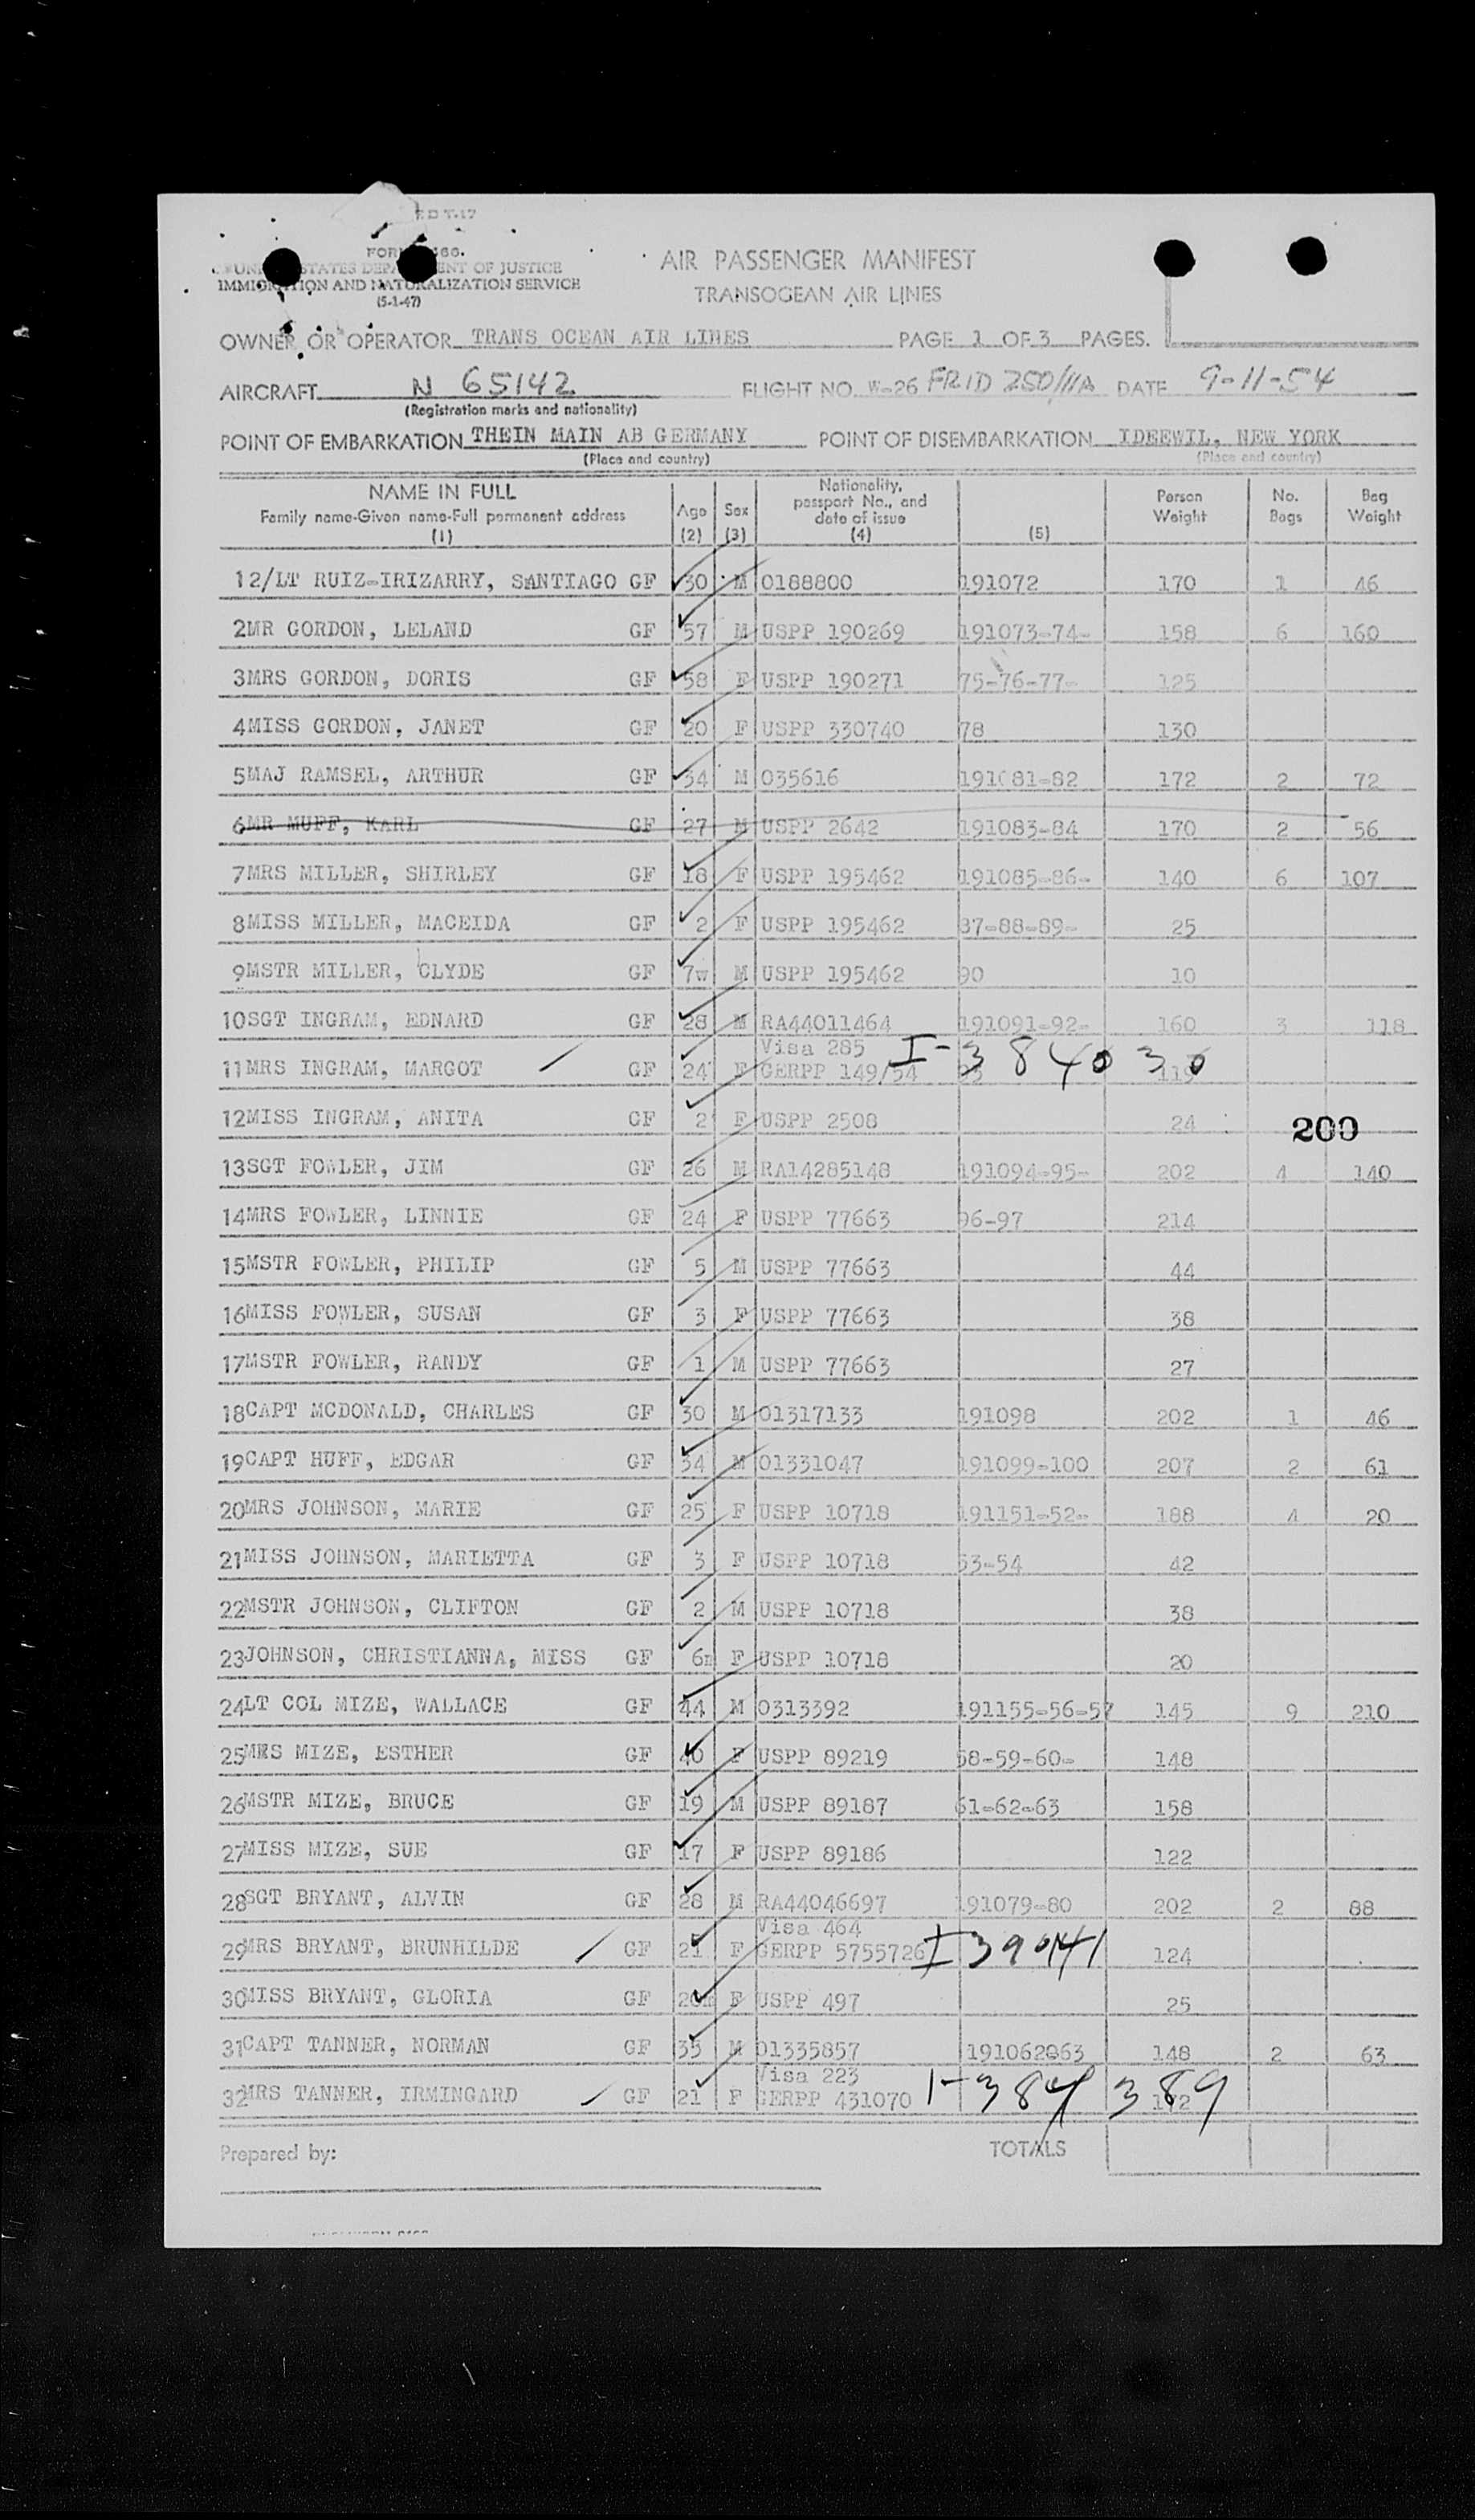 AIR PASSENGER MANIFEST
TRANSOCEAN AIR LINES
UNITED STATES DEPARTMENT OF JUSTICE
IMMIGRATION AND NATURALIZATION SERVICE
(5-1-47)
OWNER OR OPERATOR TRANS OCEAN AIR LINES PAGE 1 OF 3 PAGES.
AIRCRAFT N 65142 FLIGHT NO. W-26 FRID 250/11A DATE 9-11-54
(Registration marks and nationality)
POINT OF EMBARKATION THEIN MAIN AB GERMANY POINT OF DISEMBARKATION IDEEWIL, NEW YORK
(Place and country) (Place and country)
NAME IN FULL Family name-Given name-Full permanent address (1) Age (2) Sex (3) Nationality, passport No., and date of issue (4) (5) Person Weight No. Bags Bag Weight
1 2/LT RUIZ-IRIZARRY, SANTIAGO GF 30 M 0188800 191072 170 1 46
2 MR GORDON, LELAND GF 57 M USPP 190269 191073-74- 158 6 160
3 MRS GORDON, DORIS GF 58 F USPP 190271 75-76-77- 125
4 MISS GORDON, JANET GF 20 F USPP 330740 78 130
5 MAJ RAMSEL, ARTHUR GF 34 M 035616 191081-82 172 2 72
6 MR MUFF, KARL GF 27 M USPP 2642 191083-84 170 2 56
7 MRS MILLER, SHIRLEY GF 18 F USPP 195462 191085-86- 140 6 107
8 MISS MILLER, MACEIDA GF 2 F USPP 195462 87-88-89- 25
9 MSTR MILLER, CLYDE GF 7w M USPP 195462 90 10
10 SGT INGRAM, EDNARD GF 28 M RA44011464 191091-92- 160 3 118
Visa 285 I-384030
11 MRS INGRAM, MARGOT GF 24 F GERPP 149/54 93 119
12 MISS INGRAM, ANITA GF 2 F USPP 2508 24
200
13 SGT FOWLER, JIM GF 26 M RA14285148 191094-95- 202 4 140
14 MRS FOWLER, LINNIE GF 24 F USPP 77663 96-97 214
15 MSTR FOWLER, PHILIP GF 5 M USPP 77663 44
16 MISS FOWLER, SUSAN GF 3 F USPP 77663 38
17 MSTR FOWLER, RANDY GF 1 M USPP 77663 27
18 CAPT MCDONALD, CHARLES GF 30 M 01317133 191098 202 1 46
19 CAPT HUFF, EDGAR GF 34 M 01331047 191099-100 207 2 61
20 MRS JOHNSON, MARIE GF 25 F USPP 10718 191151-52- 188 4 20
21 MISS JOHNSON, MARIETTA GF 3 F USPP 10718 53-54 42
22 MSTR JOHNSON, CLIFTON GF 2 M USPP 10718 38
23 JOHNSON, CHRISTIANNA, MISS GF 6m F USPP 10718 20
24 LT COL MIZE, WALLACE GF 44 M 0313392 191155-56-57 145 9 210
25 MRS MIZE, ESTHER GF 40 F USPP 89219 58-59-60- 148
26 MSTR MIZE, BRUCE GF 19 M USPP 89187 61-62-63 158
27 MISS MIZE, SUE GF 17 F USPP 89186 122
28 SGT BRYANT, ALVIN GF 28 M RA44046697 191079-80 202 2 88
Visa 464
29 MRS BRYANT, BRUNHILDE GF 21 F GERPP 5755726 I 124
30 MISS BRYANT, GLORIA GF 20m F USPP 497 25
31 CAPT TANNER, NORMAN GF 35 M 01335857 191062863 148 2 63
Visa 223
32 MRS TANNER, IRMINGARD GF 21 F GERPP 431070 I-384389
Prepared by: TOTALS